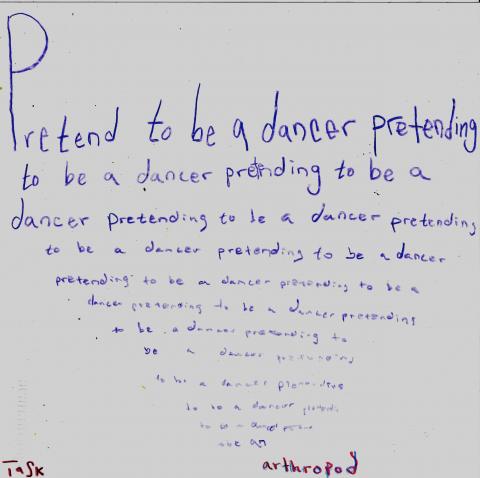 Pretend to be a dancer pretending
to be a dancer pretending to be a
dancer pretending to be a dancer pretending
to be a dancer pretending to be a dancer
pretending to be a dancer pretending to be a
dancer pretending to be a dancer pretending
to be a dancer pretending to
be a dancer pretending
to be a dancer pretending
to be a dancer
to be a dancer
be an
Task arthropod